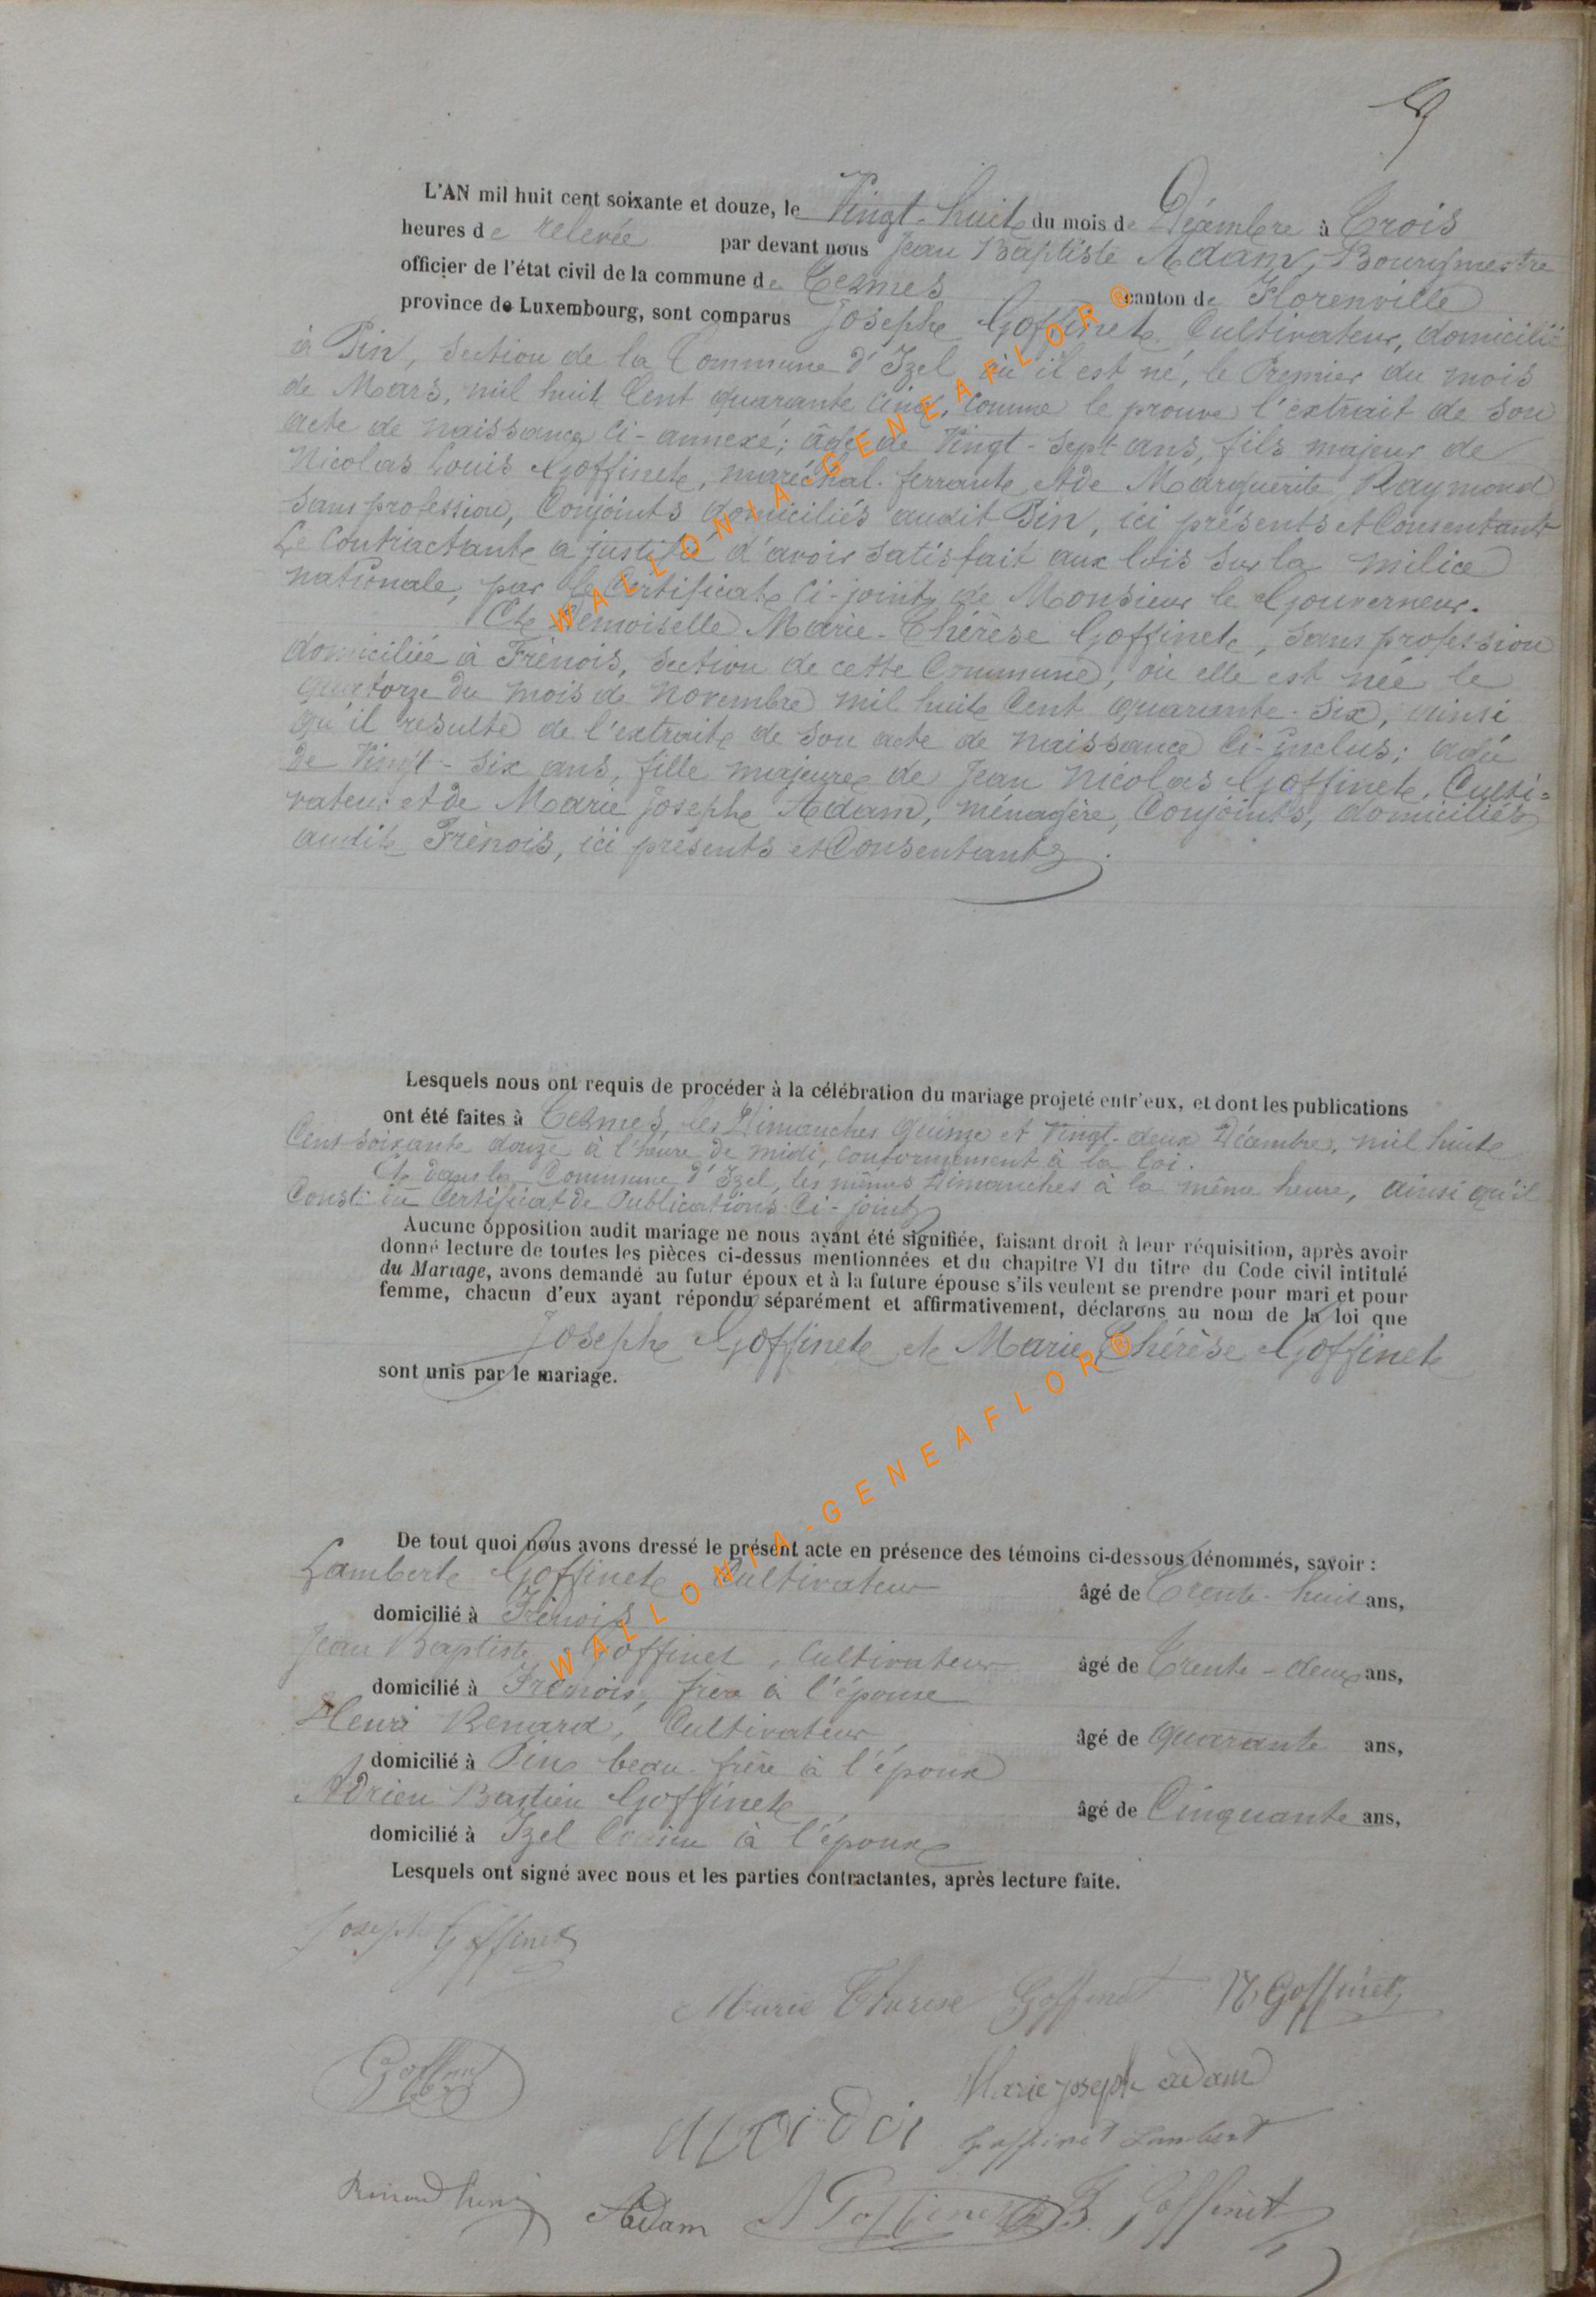 9
L'AN mil huit cent soixante et douze, le Vingt-huit du mois de Décembre à Trois
heures de relevée par devant nous Jean Baptiste Adam, Bourgmestre
officier de l'état civil de la commune de Termes canton de Florenville
province de Luxembourg, sont comparus Joseph Goffinet Cultivateur, domicilié
à Pin, Section de la Commune d'Izel où il est né, le Premier du mois
de Mars, mil huit Cent quarante Cinq, Comme le prouve l'extrait de son
acte de naissance Ci-annexé; âgé de Vingt-Sept ans, fils majeur de
Nicolas Louis Goffinet, maréchal-ferrant, et de Marguerite Raymond
Sans profession, Conjoints domiciliés audit Pin, ici présents et Consentants
Le Contractant a justifié d'avoir satisfait aux lois sur la milice
nationale, par le Certificat Ci-joint de Monsieur le Gouverneur.
Et Demoiselle Marie-Thérèse Goffinet, Sans profession
domiciliée à Frènois, Section de cette Commune, où elle est née le
quatorze du mois de Novembre mil huit Cent quarante-Six, ainsi
qu'il resulte de l'extrait de son acte de naissance Ci-inclus; agée
de Vingt-Six ans, fille majeure de Jean Nicolas Goffinet, Culti=
vateur et de Marie Josephe Adam, ménagère, Conjoints, domiciliés
audit Frènois, ici présents et Consentants.
Lesquels nous ont requis de procéder à la célébration du mariage projeté entr'eux, et dont les publications
ont été faites à Termes, les Dimanches Quinze et Vingt-deux Décembre, mil huit
Cent Soixante douze à l'heure de midi, conformément à la loi.
Et dans la Commune d'Izel, les mêmes Dimanches à la même heure, ainsi qu'il
Conste du Certificat de Publications Ci-joint
Aucune opposition audit mariage ne nous ayant été signifiée, faisant droit à leur réquisition, après avoir
donné lecture de toutes les pièces ci-dessus mentionnées et du chapitre VI du titre du Code civil intitulé
du Mariage, avons demandé au futur époux et à la future épouse s'ils veulent se prendre pour mari et pour
femme, chacun d'eux ayant répondu séparément et affirmativement, déclarons au nom de la loi que
Joseph Goffinet et Marie Thérèse Goffinet
sont unis par le mariage.
De tout quoi nous avons dressé le présent acte en présence des témoins ci-dessous dénommés, savoir :
Lambert Goffinet Cultivateur âgé de Trente-huit ans,
domicilié à Frènois
Jean Baptiste Goffinet, Cultivateur âgé de Trente-deux ans,
domicilié à Frènois, frère à l'épouse
Henri Renard, Cultivateur âgé de quarante ans,
domicilié à Pin beau-frère à l'époux
Adrien Bastien Goffinet, âgé de Cinquante ans,
domicilié à Izel Cousin à l'époux
Lesquels ont signé avec nous et les parties contractantes, après lecture faite.
Joseph Goffinet
Marie Therese Goffinet N Goffinet
Goffinet
Marie joseph adam
Goffinet Lambert
Renard henri Adam A Goffinet J B. Goffinet
WALLONIA-GENEAFLOR®
WALLONIA-GENEAFLOR®